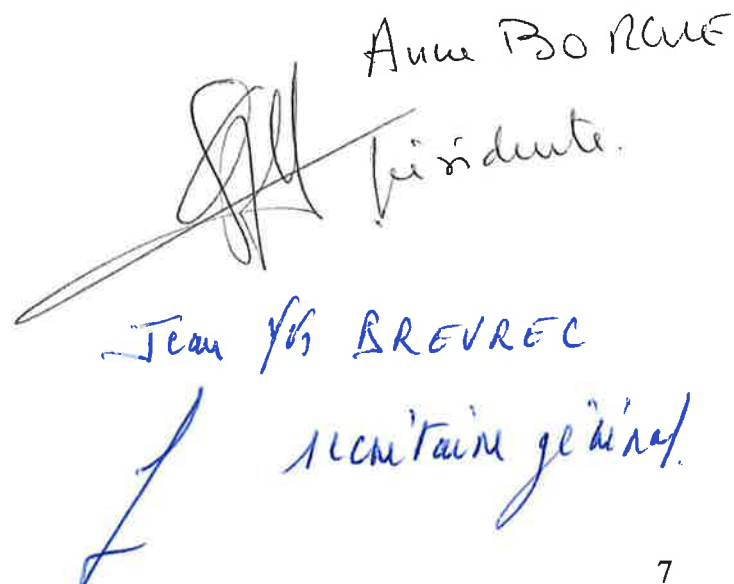 Anne BORGNE
Présidente.
Jean Yves BREVREC
secrétaire général.
7